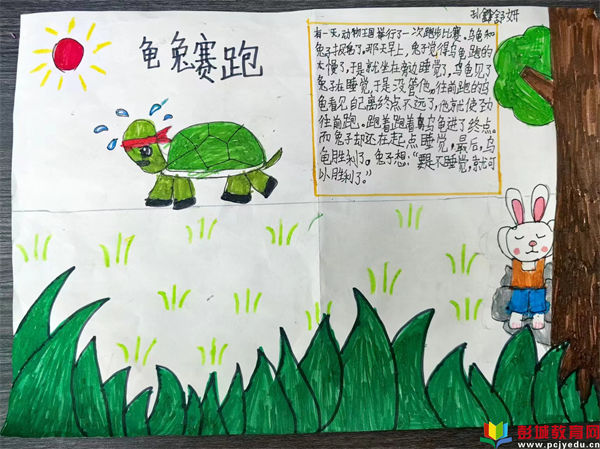 龟兔赛跑
有一天,动物王国举行了一次跑步比赛。乌龟和
兔子报名了。那天早上,兔子觉得乌龟跑的
太慢了,于是就坐在旁边睡觉了,乌龟见了
兔子在睡觉,于是没管他。往前跑的乌
龟看见自己离终点不远了,他就使劲
往前跑。跑着,跑着乌龟进了终点。
而兔子却还在起点睡觉,最后,乌
龟胜利了。兔子想:“要是不睡觉,就可
以胜利了。”
彭城教育网
www.pcjyedu.cn